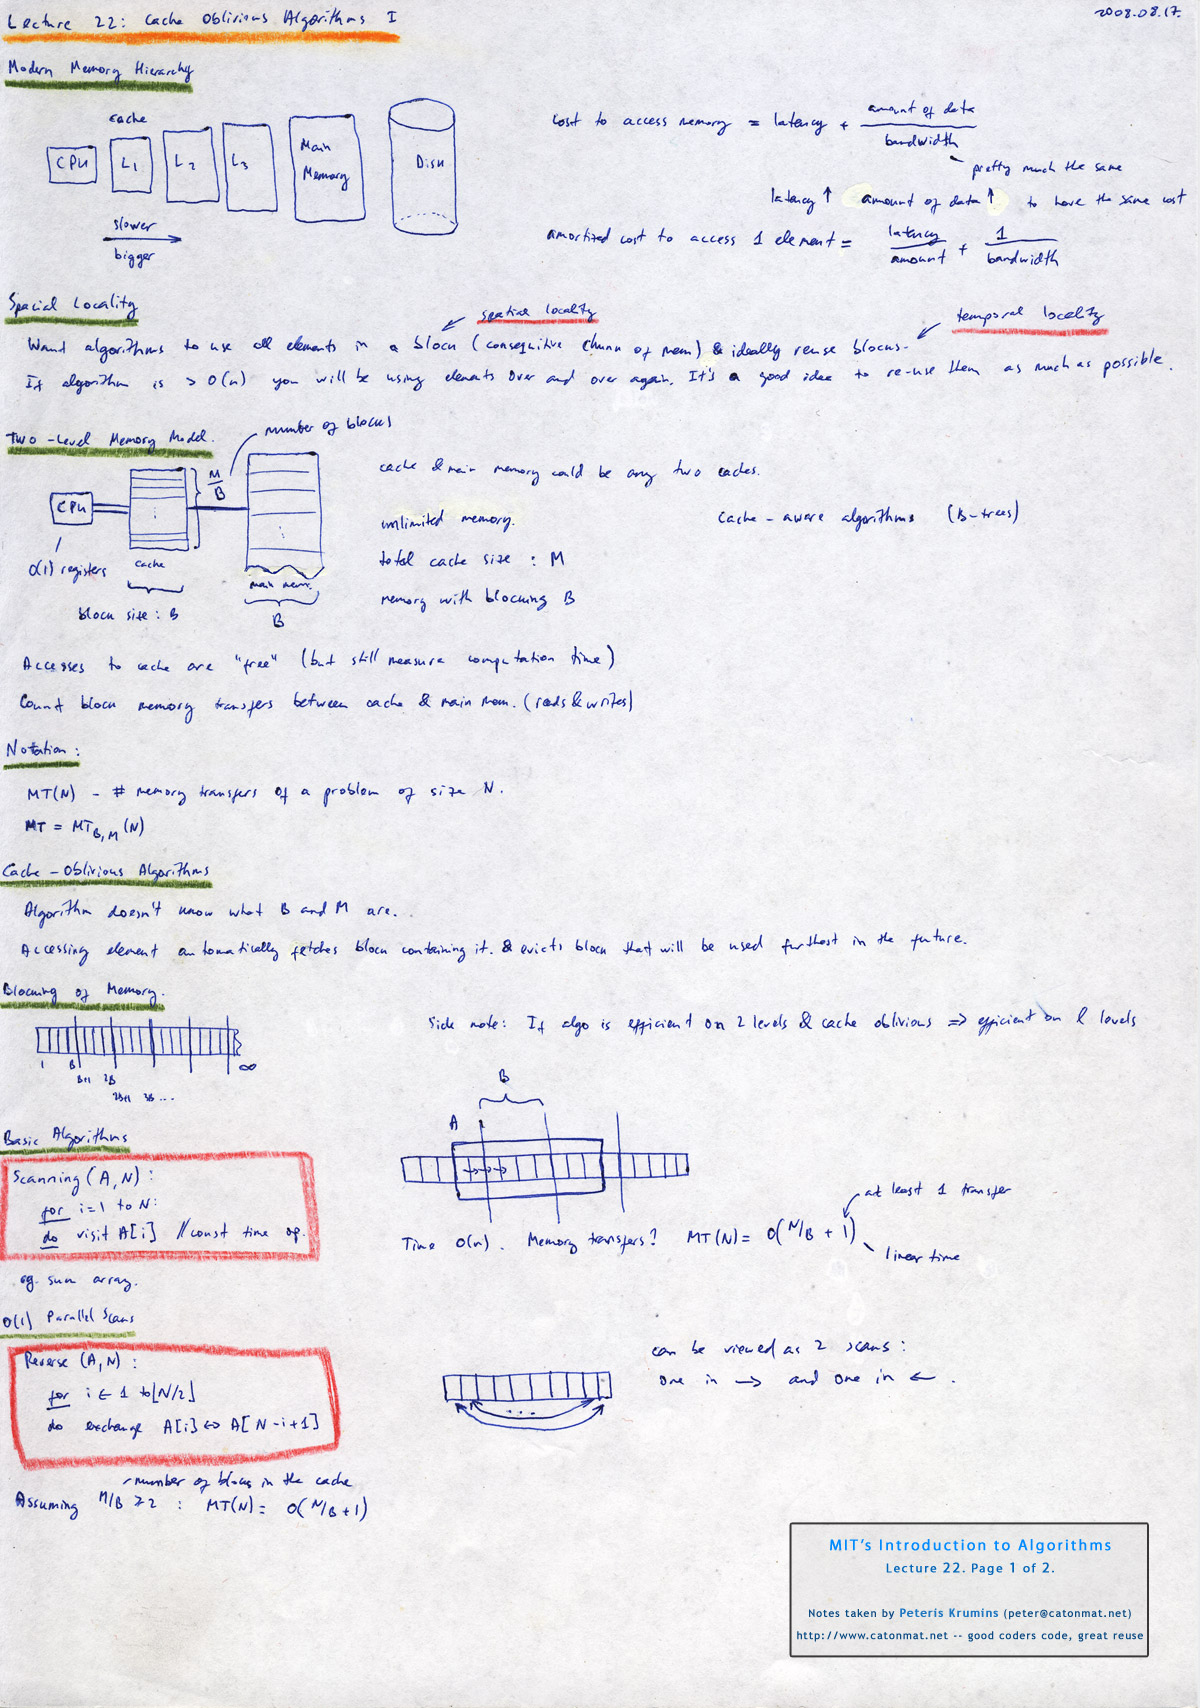 Lecture 22: Cache Oblivious Algorithms I
2008.08.17.
Modern Memory Hierarchy
cache
CPU
L1
L2
L3
Main
Memory
Disk
slower
bigger
cost to access memory = latency + amount of data / bandwidth
pretty much the same
latency ↑ amount of data ↑ to have the same cost
amortized cost to access 1 element = latency / amount + 1 / bandwidth
Spacial Locality
spatial locality
temporal locality
Want algorithms to use all elements in a block (consequitive chunk of mem) & ideally reuse blocks.
If algorithm is > O(n) you will be using elements over and over again. It's a good idea to re-use them as much as possible.
Two-Level Memory Model.
number of blocks
M/B
CPU
O(1) registers
cache
block size: B
main mem.
B
cache & main memory could be any two caches.
unlimited memory.
total cache size : M
memory with blocking B
Cache-aware algorithms (B-trees)
Accesses to cache are "free" (but still measure computation time)
Count block memory transfers between cache & main mem. (reads & writes)
Notation:
MT(N) - # memory transfers of a problem of size N.
MT = MT_B,M (N)
Cache-Oblivious Algorithms
Algorithm doesn't know what B and M are.
Accessing element automatically fetches block containing it. & evicts block that will be used furthest in the future.
Blocking of Memory.
1 B
B+1 2B
2B+1 3B ...
∞
Side note: If algo is efficient on 2 levels & cache oblivious => efficient on l levels
Basic Algorithms
Scanning (A, N):
for i=1 to N:
do visit A[i] // const time op.
eg. sum array.
B
A
at least 1 transfer
Time O(n). Memory transfers? MT(N) = O(N/B + 1)
linear time
O(1) Parallel Scans
Reverse (A, N):
for i ← 1 to ⌊N/2⌋
do exchange A[i] ↔ A[N-i+1]
...
can be viewed as 2 scans:
one in → and one in ←.
number of blocks in the cache
Assuming M/B ≥ 2 : MT(N) = O(N/B + 1)
MIT's Introduction to Algorithms
Lecture 22. Page 1 of 2.
Notes taken by Peteris Krumins (peter@catonmat.net)
http://www.catonmat.net -- good coders code, great reuse